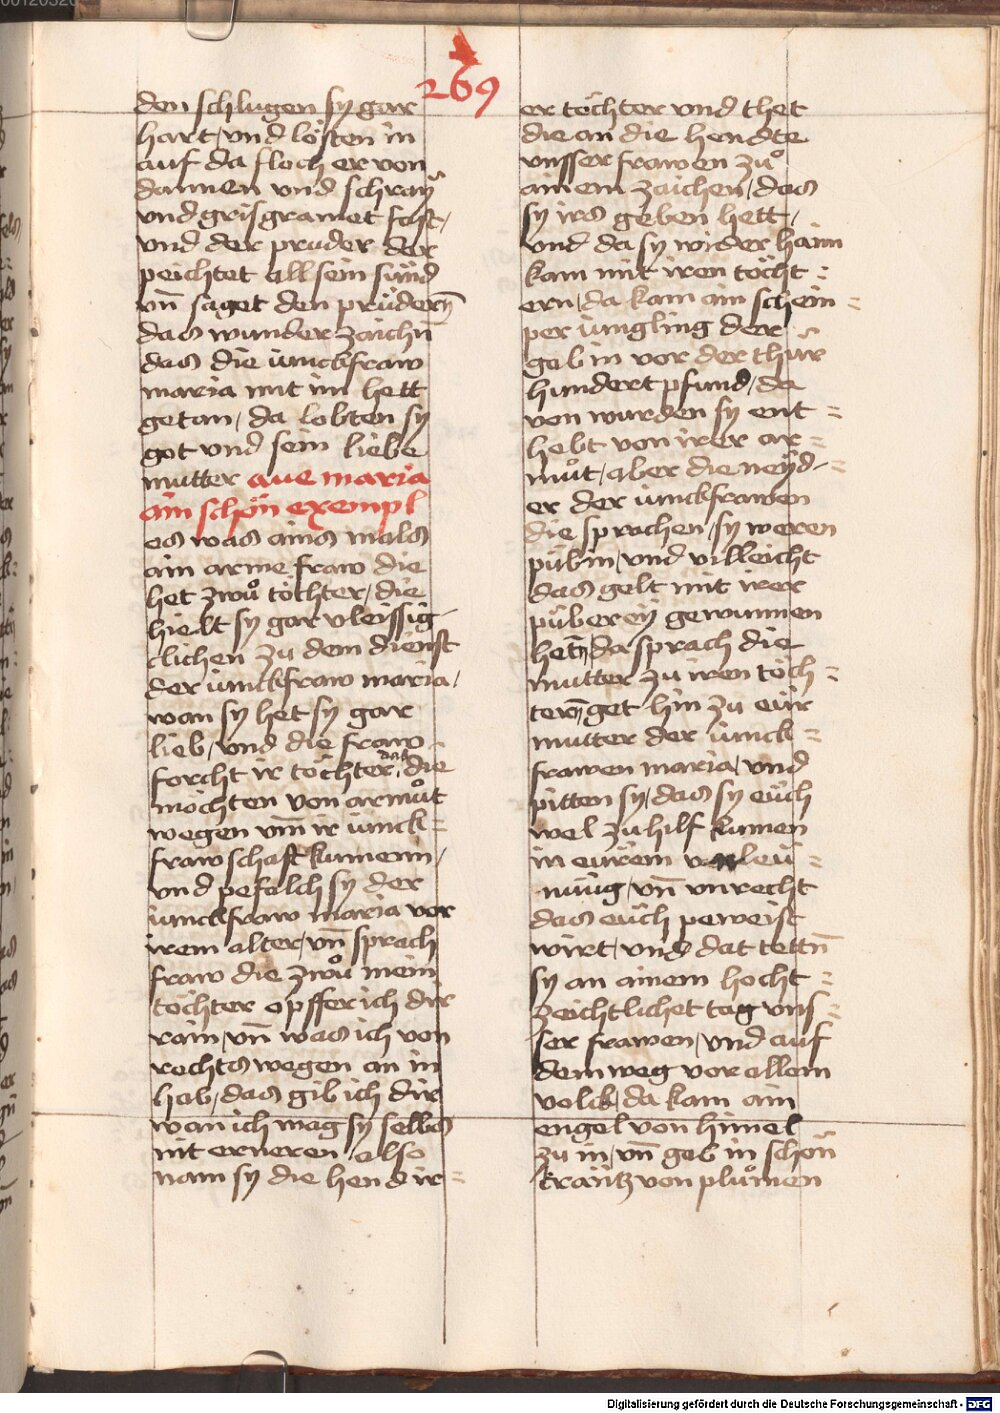 269
den schlugen sy gar
hart / vnd lösten in
auf da floch er von
dannen vnd schraÿ
vnd grisgramet fast /
vnd der pruder der
peichtet all sein sünd
vn̄ saget den prüdern̄
das wunder zaichn
das die iunckfraw
maria mit im hett
getan / da lobten sy
got vnd sein liebe
mutter aue maria
ain schön exempl
es was ains mals
ain arme fraw die
het zwů töchter / die
hielt sy gar vleissig
clichen zu dem dienst
der iunckfraw maria /
wan sy het sy gar
lieb / vnd die fraw
forcht ir töchter / das die
möchten von armůt
wegen vm̄ ir iunck=
frawschaft kumenn /
vnd pefalch sy der
iunckfraw maria vor
irem alter / vn̄ sprach
fraw die zwů mein
töchter opffer ich dir
rain / vn̄ was ich von
rechts wegen an in
hab / das gib ich dir
wan ich mag sy selbs
nit erneren / also
nam sy die hend ir=
er töchter vnd thet
die an die hendte
vnsser frawen zů
ainem zaichen / das
sy irs geben hett /
vnd da sy wider haim
kam mit iren töcht=
ern / da kam ain schein=
per iungling der
gab in vor der thür
hundert pfund / da
von wurden sy ent=
hebt von irer ar=
můt / aber die neÿd=
er der iunckfrawen
die sprachen / sy weren
pübin / vnd villeicht
das gelt mit irer
püberey gewunnen
hetn̄ / da sprach die
mutter zu iren töch=
tern̄ / get hin zu eür
mutter der iunck=
frawen maria / vnd
pitten sy / das sy eüch
wel zu hilf kumen
in eürem verleü=
nüng / vn̄ vnrecht
das eüch peweist
wirt / vnd dat tettn̄
sy an ainem hocht=
zeichtlichet tag vns=
ser frawen / vnd auf
dem weg vor allem
volik / da kam ain
engel von himel
zu in / vn̄ gab in schön
kräntz von plůmen
Digitalisierung gefördert durch die Deutsche Forschungsgemeinschaft - DFG